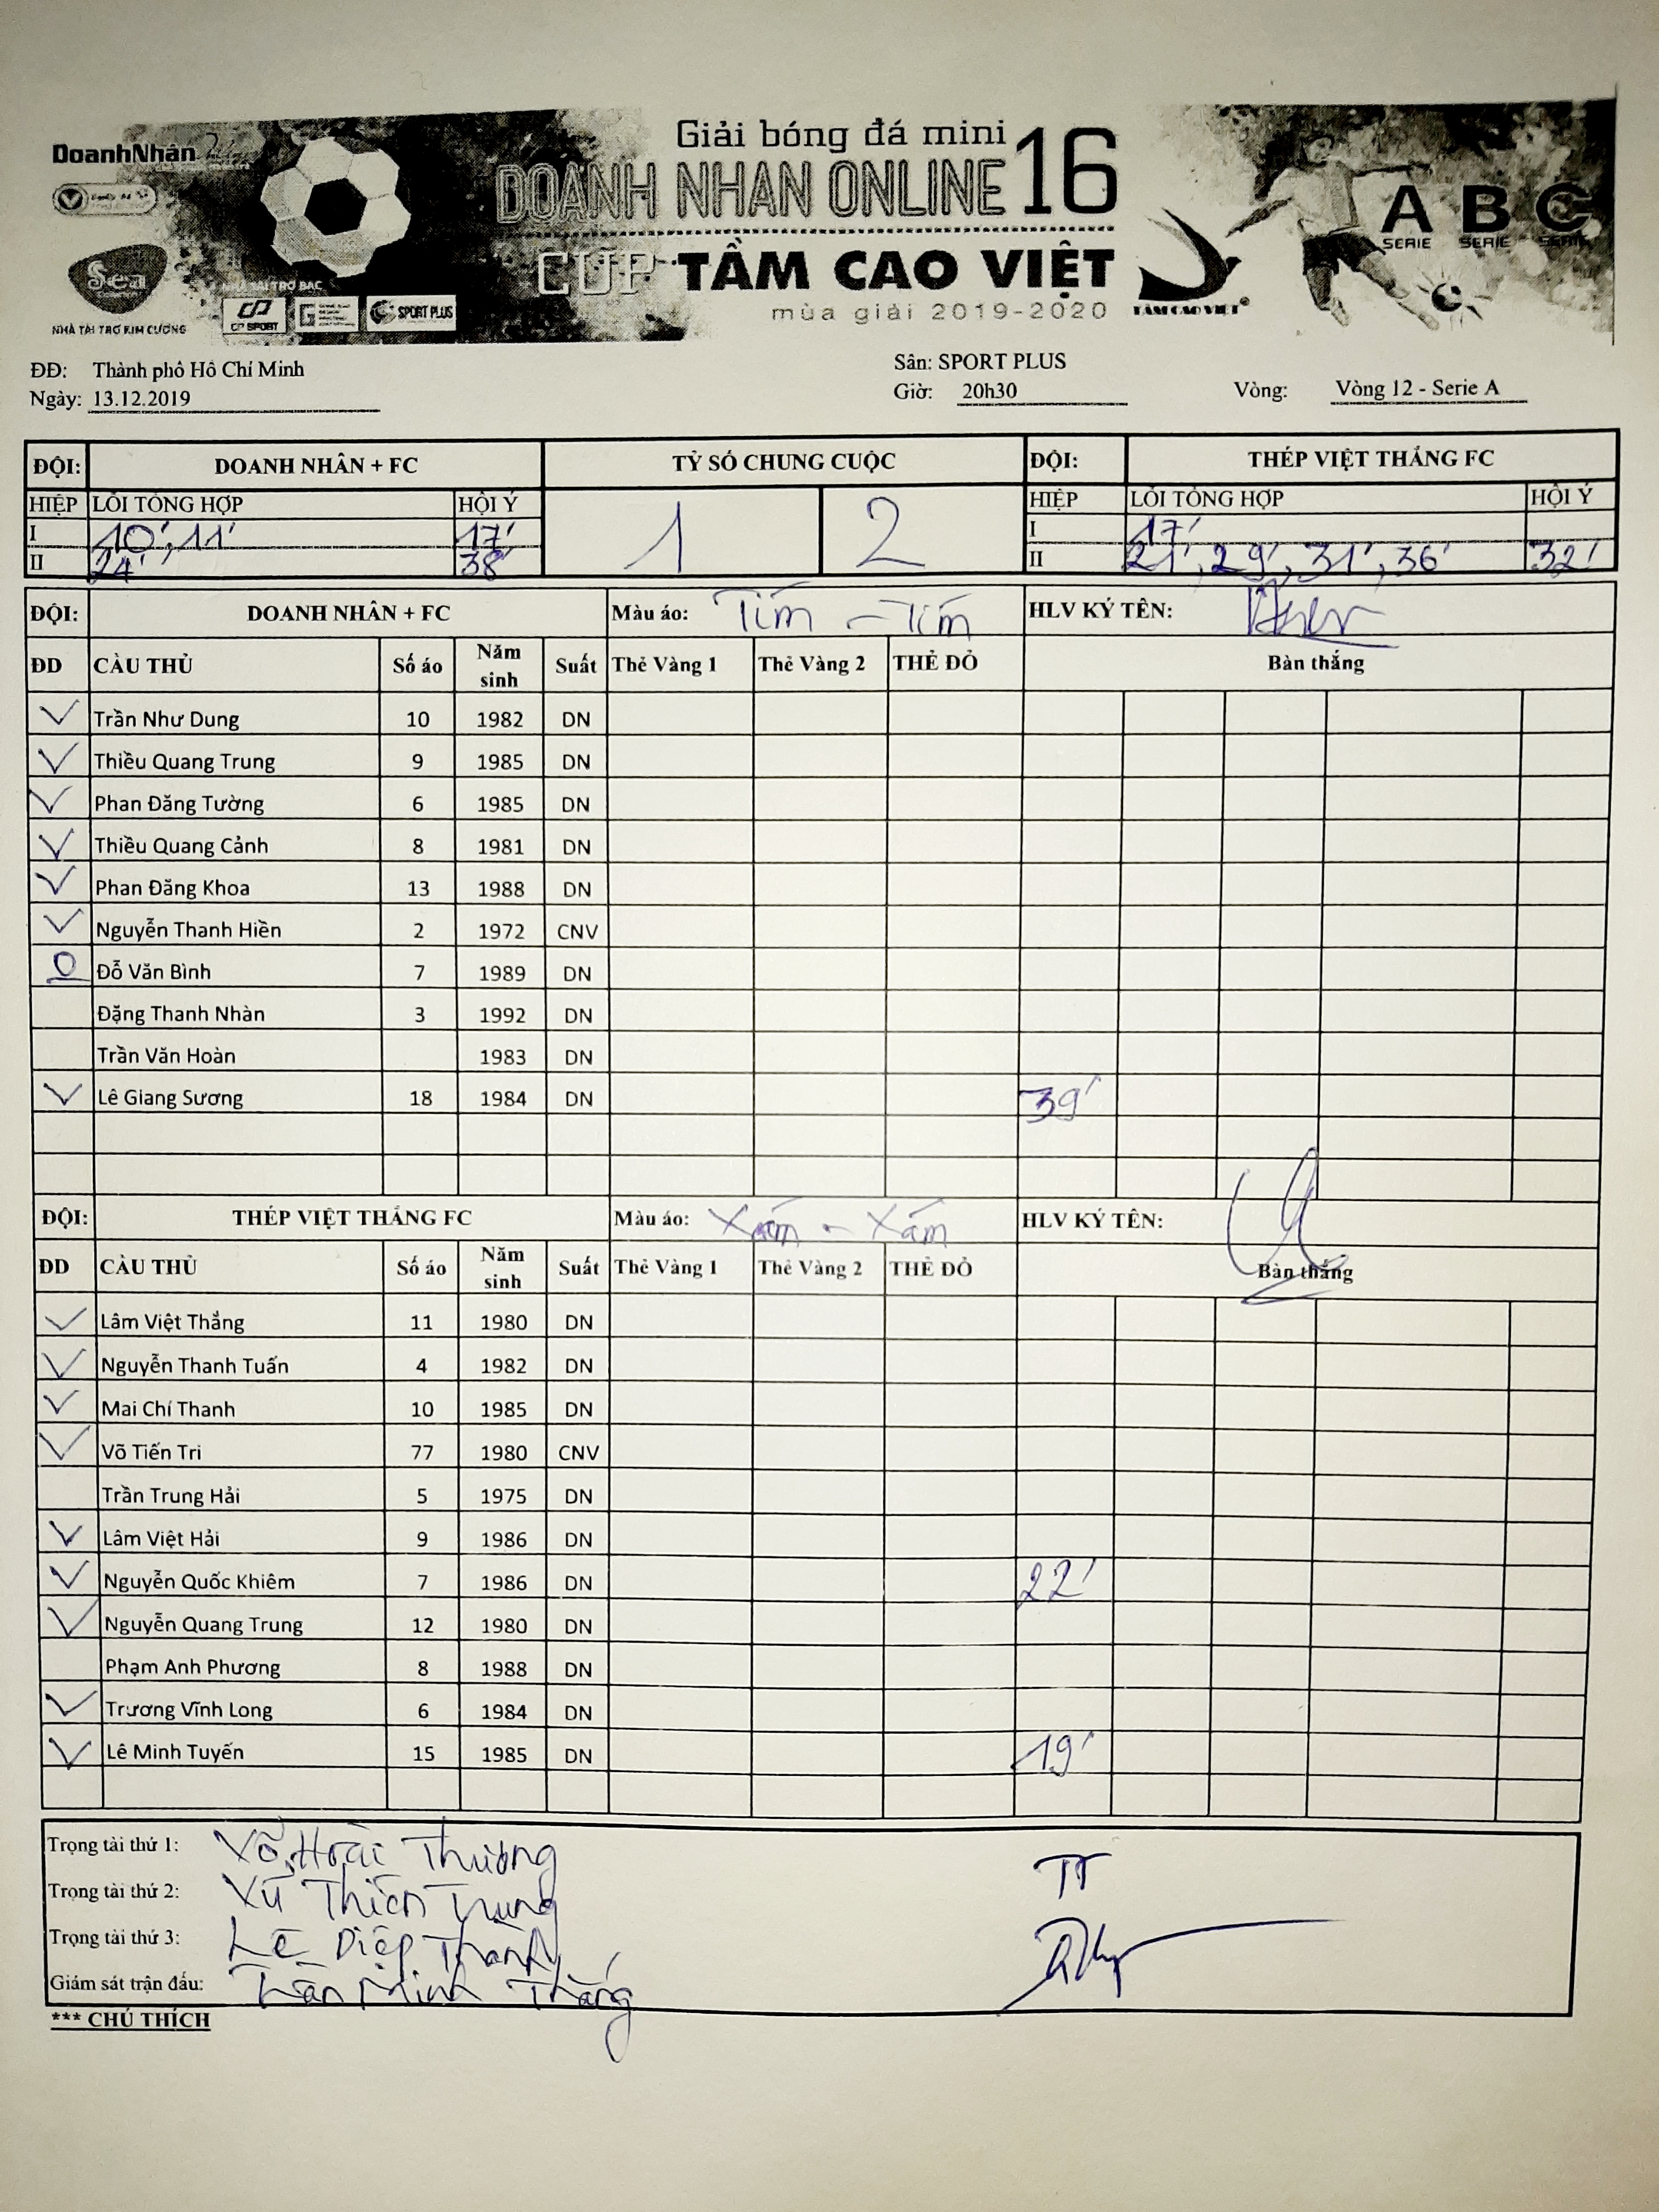 Giải bóng đá mini
DoanhNhân
DOANH NHÂN ONLINE 16
CÚP TẦM CAO VIỆT
mùa giải 2019-2020
A B C
SERIE SERIE SERIE
Seal
NHÀ TÀI TRỢ KIM CƯƠNG
NHÀ TÀI TRỢ BẠC
CP SPORT
SPORT PLUS
TẦM CAO VIỆT
ĐĐ: Thành phố Hồ Chí Minh Sân: SPORT PLUS
Ngày: 13.12.2019 Giờ: 20h30 Vòng: Vòng 12 - Serie A
ĐỘI: DOANH NHÂN + FC TỶ SỐ CHUNG CUỘC ĐỘI: THÉP VIỆT THẮNG FC
HIỆP LỖI TỔNG HỢP HỘI Ý 1 2 HIỆP LỖI TỔNG HỢP HỘI Ý
I 10', 11' 17' I 17'
II 24' 38' II 21', 29', 31', 36' 32'
ĐỘI: DOANH NHÂN + FC Màu áo: Tím - Tím HLV KÝ TÊN:
ĐD CẦU THỦ Số áo Năm sinh Suất Thẻ Vàng 1 Thẻ Vàng 2 THẺ ĐỎ Bàn thắng
Trần Như Dung 10 1982 DN
Thiều Quang Trung 9 1985 DN
Phan Đăng Tường 6 1985 DN
Thiều Quang Cảnh 8 1981 DN
Phan Đăng Khoa 13 1988 DN
Nguyễn Thanh Hiền 2 1972 CNV
Đỗ Văn Bình 7 1989 DN
Đặng Thanh Nhàn 3 1992 DN
Trần Văn Hoàn 1983 DN
Lê Giang Sương 18 1984 DN 39'
ĐỘI: THÉP VIỆT THẮNG FC Màu áo: Xám - Xám HLV KÝ TÊN:
ĐD CẦU THỦ Số áo Năm sinh Suất Thẻ Vàng 1 Thẻ Vàng 2 THẺ ĐỎ Bàn thắng
Lâm Việt Thắng 11 1980 DN
Nguyễn Thanh Tuấn 4 1982 DN
Mai Chí Thanh 10 1985 DN
Võ Tiến Tri 77 1980 CNV
Trần Trung Hải 5 1975 DN
Lâm Việt Hải 9 1986 DN
Nguyễn Quốc Khiêm 7 1986 DN 22'
Nguyễn Quang Trung 12 1980 DN
Phạm Anh Phương 8 1988 DN
Trương Vĩnh Long 6 1984 DN
Lê Minh Tuyến 15 1985 DN 19'
Trọng tài thứ 1: Võ Hoài Thương
Trọng tài thứ 2: Vũ Thiên Trung
Trọng tài thứ 3: Lê Diệp Thành
Giám sát trận đấu: Trần Minh Thắng
*** CHÚ THÍCH